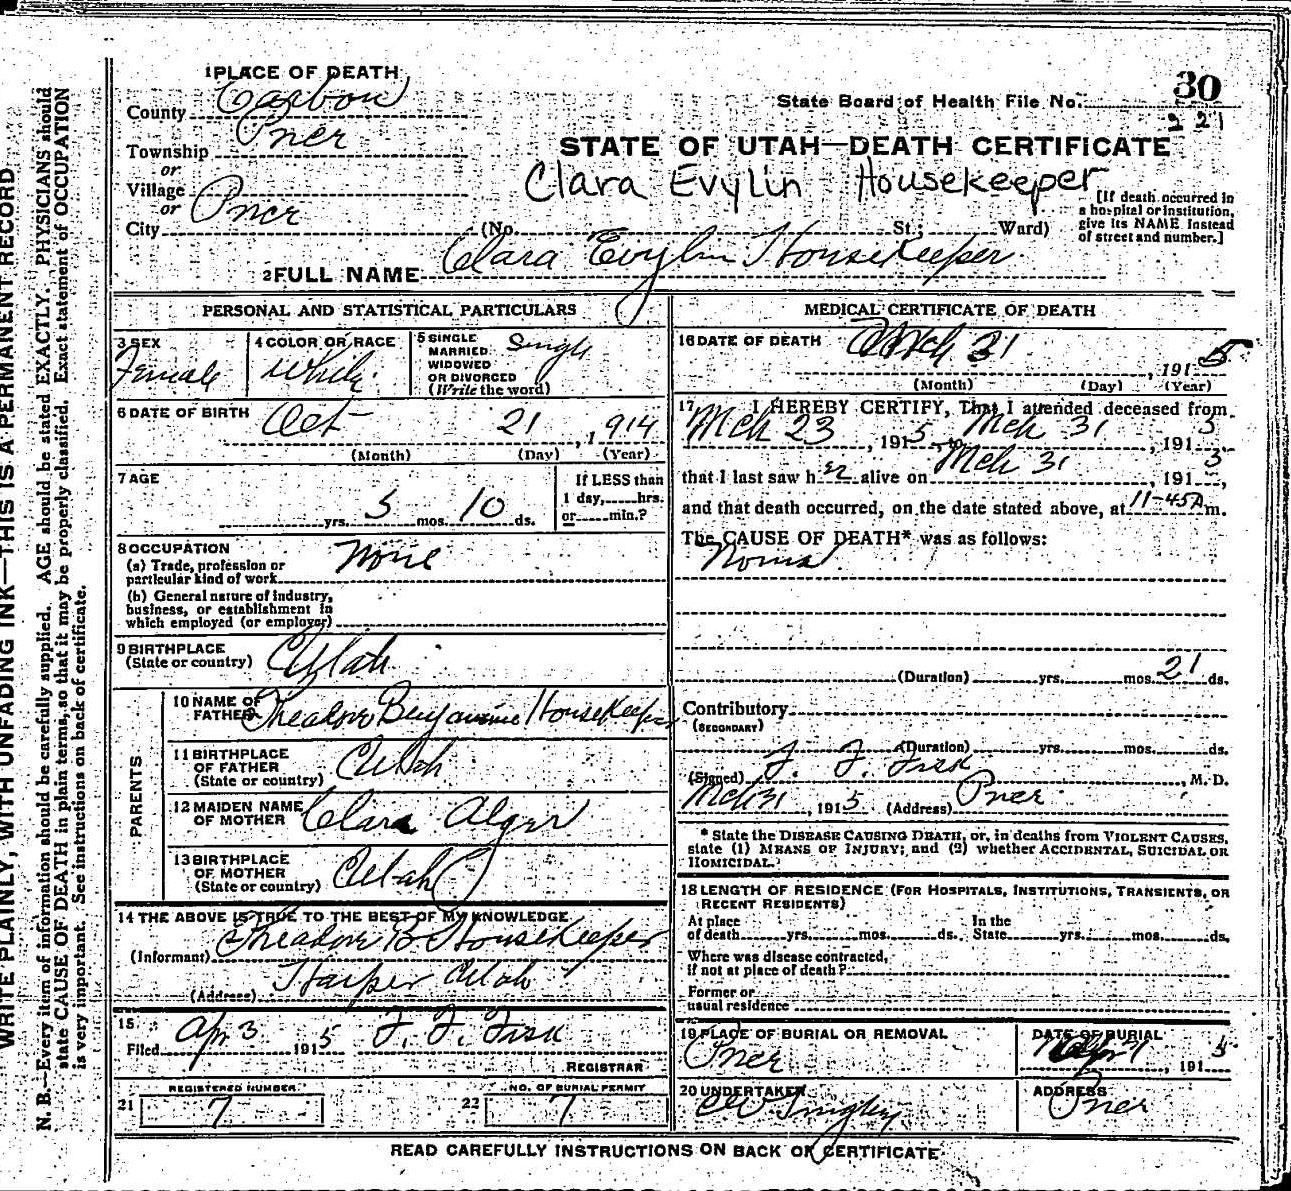 WRITE PLAINLY, WITH UNFADING INK—THIS IS A PERMANENT RECORD
N. B.—Every item of information should be carefully supplied. AGE should be stated EXACTLY. PHYSICIANS should
state CAUSE OF DEATH in plain terms, so that it may be properly classified. Exact statement of OCCUPATION
is very important. See instructions on back of certificate.
1 PLACE OF DEATH
County Carbon
Township Price
or
Village
or
City Price
State Board of Health File No. 30
221
STATE OF UTAH—DEATH CERTIFICATE
Clara Evylin Housekeeper
(No. St.; Ward)
[If death occurred in
a hospital or institution,
give its NAME instead
of street and number.]
2 FULL NAME Clara Evylin Housekeeper
PERSONAL AND STATISTICAL PARTICULARS
3 SEX Female
4 COLOR OR RACE White
5 SINGLE
MARRIED
WIDOWED
OR DIVORCED
(Write the word)
Single
6 DATE OF BIRTH Oct 21, 1914
(Month) (Day) (Year)
7 AGE
yrs. 5 mos. 10 ds.
If LESS than
1 day, hrs.
or min.?
8 OCCUPATION
(a) Trade, profession or
particular kind of work None
(b) General nature of industry,
business, or establishment in
which employed (or employer)
9 BIRTHPLACE
(State or country) Utah
PARENTS
10 NAME OF
FATHER Theadore Benjamine Housekeeper
11 BIRTHPLACE
OF FATHER
(State or country) Utah
12 MAIDEN NAME
OF MOTHER Clara Alger
13 BIRTHPLACE
OF MOTHER
(State or country) Utah
14 THE ABOVE IS TRUE TO THE BEST OF MY KNOWLEDGE
(Informant) Theadore B Housekeeper
(Address) Harper Utah
15
Filed Apr 3 1915 F. F. Fisk
REGISTRAR
REGISTERED NUMBER
21 7
NO. OF BURIAL PERMIT
22 7
MEDICAL CERTIFICATE OF DEATH
16 DATE OF DEATH Mch 31, 1915
(Month) (Day) (Year)
17 I HEREBY CERTIFY, That I attended deceased from
Mch 23, 1915, to Mch 31, 1915
that I last saw her alive on Mch 31, 1915,
and that death occurred, on the date stated above, at 11-45 A m.
The CAUSE OF DEATH* was as follows:
(Duration) yrs. mos. 21 ds.
Contributory
(SECONDARY)
(Duration) yrs. mos. ds.
(Signed) F. F. Fisk, M. D.
Mch 31, 1915 (Address) Price
* State the DISEASE CAUSING DEATH, or, in deaths from VIOLENT CAUSES,
state (1) MEANS OF INJURY; and (2) whether ACCIDENTAL, SUICIDAL OR
HOMICIDAL.
18 LENGTH OF RESIDENCE (FOR HOSPITALS, INSTITUTIONS, TRANSIENTS, OR
RECENT RESIDENTS)
At place
of death yrs. mos. ds.
In the
State yrs. mos. ds.
Where was disease contracted,
if not at place of death?
Former or
usual residence
19 PLACE OF BURIAL OR REMOVAL
Price
DATE OF BURIAL
, 1915
20 UNDERTAKER
ADDRESS
Price
READ CAREFULLY INSTRUCTIONS ON BACK OF CERTIFICATE